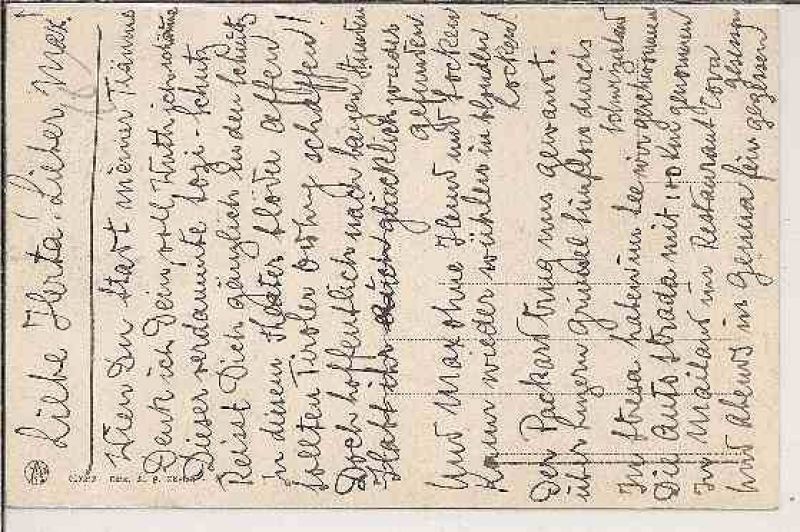 Liebe Herta! Lieber Max!
Wien Du Start meiner Träume
Denk ich Dein voll Wuth ich schäume
Dieser verdammte Sozi-Schutz
Reisst Dich gänzlich in den Schmutz
In diesem Theater blöder Affen
sollten Tiroler Ordng schaffen!
Doch hoffentlich nach bangen Stunden
Habt ihr Euch glücklich wieder
gefunden
Und Max ohne Hemd und Socken
Kann wieder wühlen in blonden
Locken!
Der Packard trug uns gewandt.
über Luzern durchs
Schwizerland
In Stresa haben im See wir geschwommen
Die Auto Strada mit 140 km genommen
In Mailand im Restaurant Cova
gesessen
Und abends in Genua fein gegessen